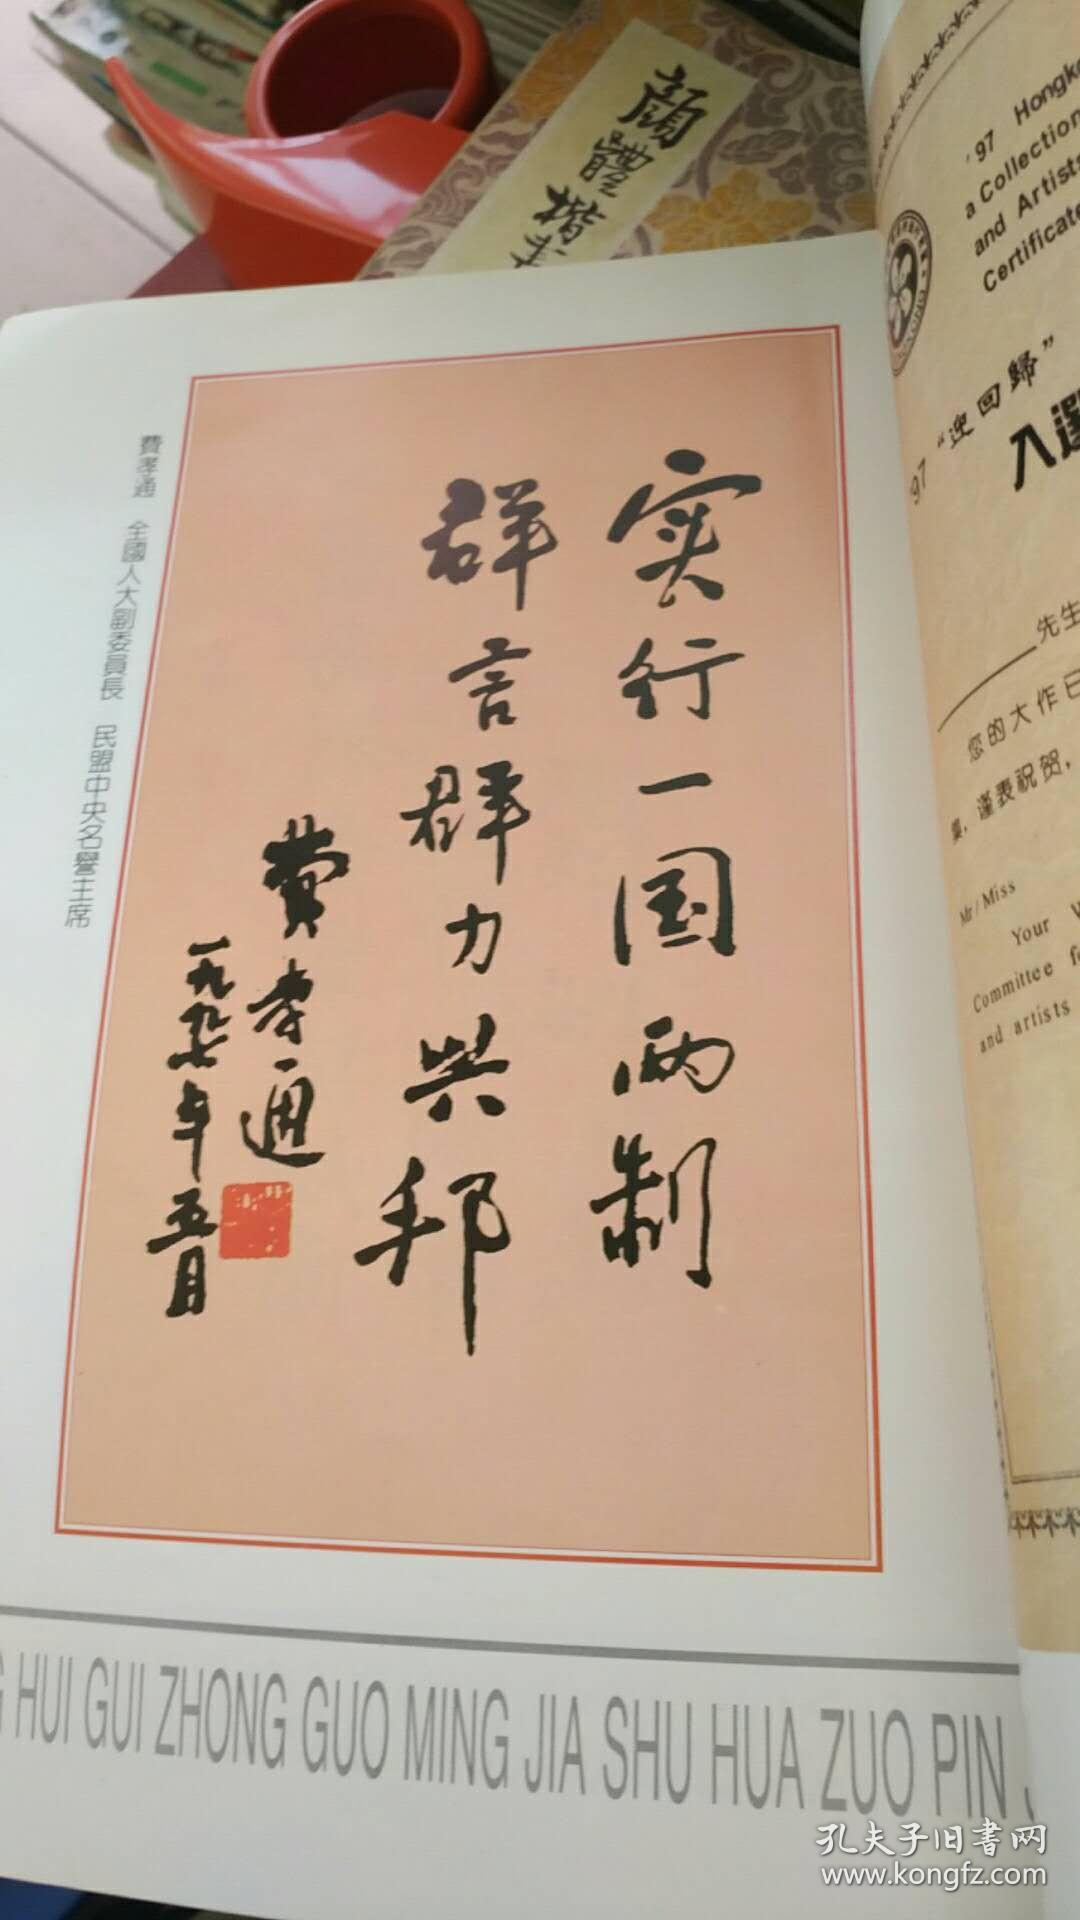 顏體楷
实行一国两制
群言群力兴邦
費孝通
一九九七年五月
費孝通 全國人大副委員長 民盟中央名譽主席
G HUI GUI ZHONG GUO MING JIA SHU HUA ZUO PIN
'97 Hongk
a Collection
and Artists
Certificate
97 “迎回歸”
入選
先生
您的大作已
集，谨表祝贺，
Mr/Miss
Your
Committee f
and artists
孔夫子旧書网
www.kongfz.com